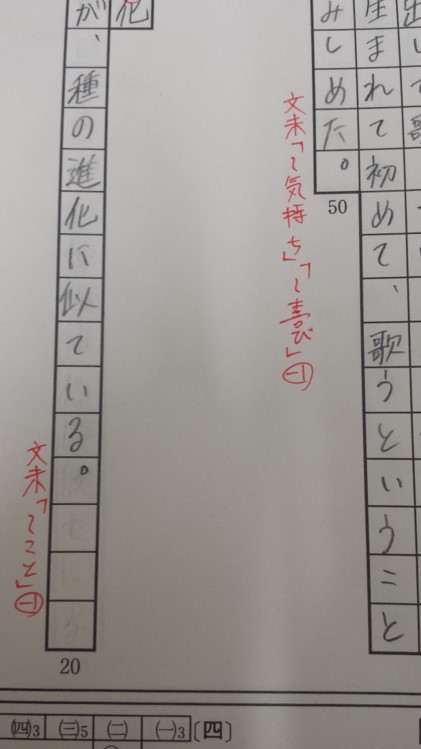 生まれて初めて、歌うということ
みしめた。
50
文末「〜気持ち」「〜喜び」-1
化
が、種の進化に似ている。
20
文末「〜こと」-1
〔四〕 ㈠3 ㈡ ㈢5 ㈣3